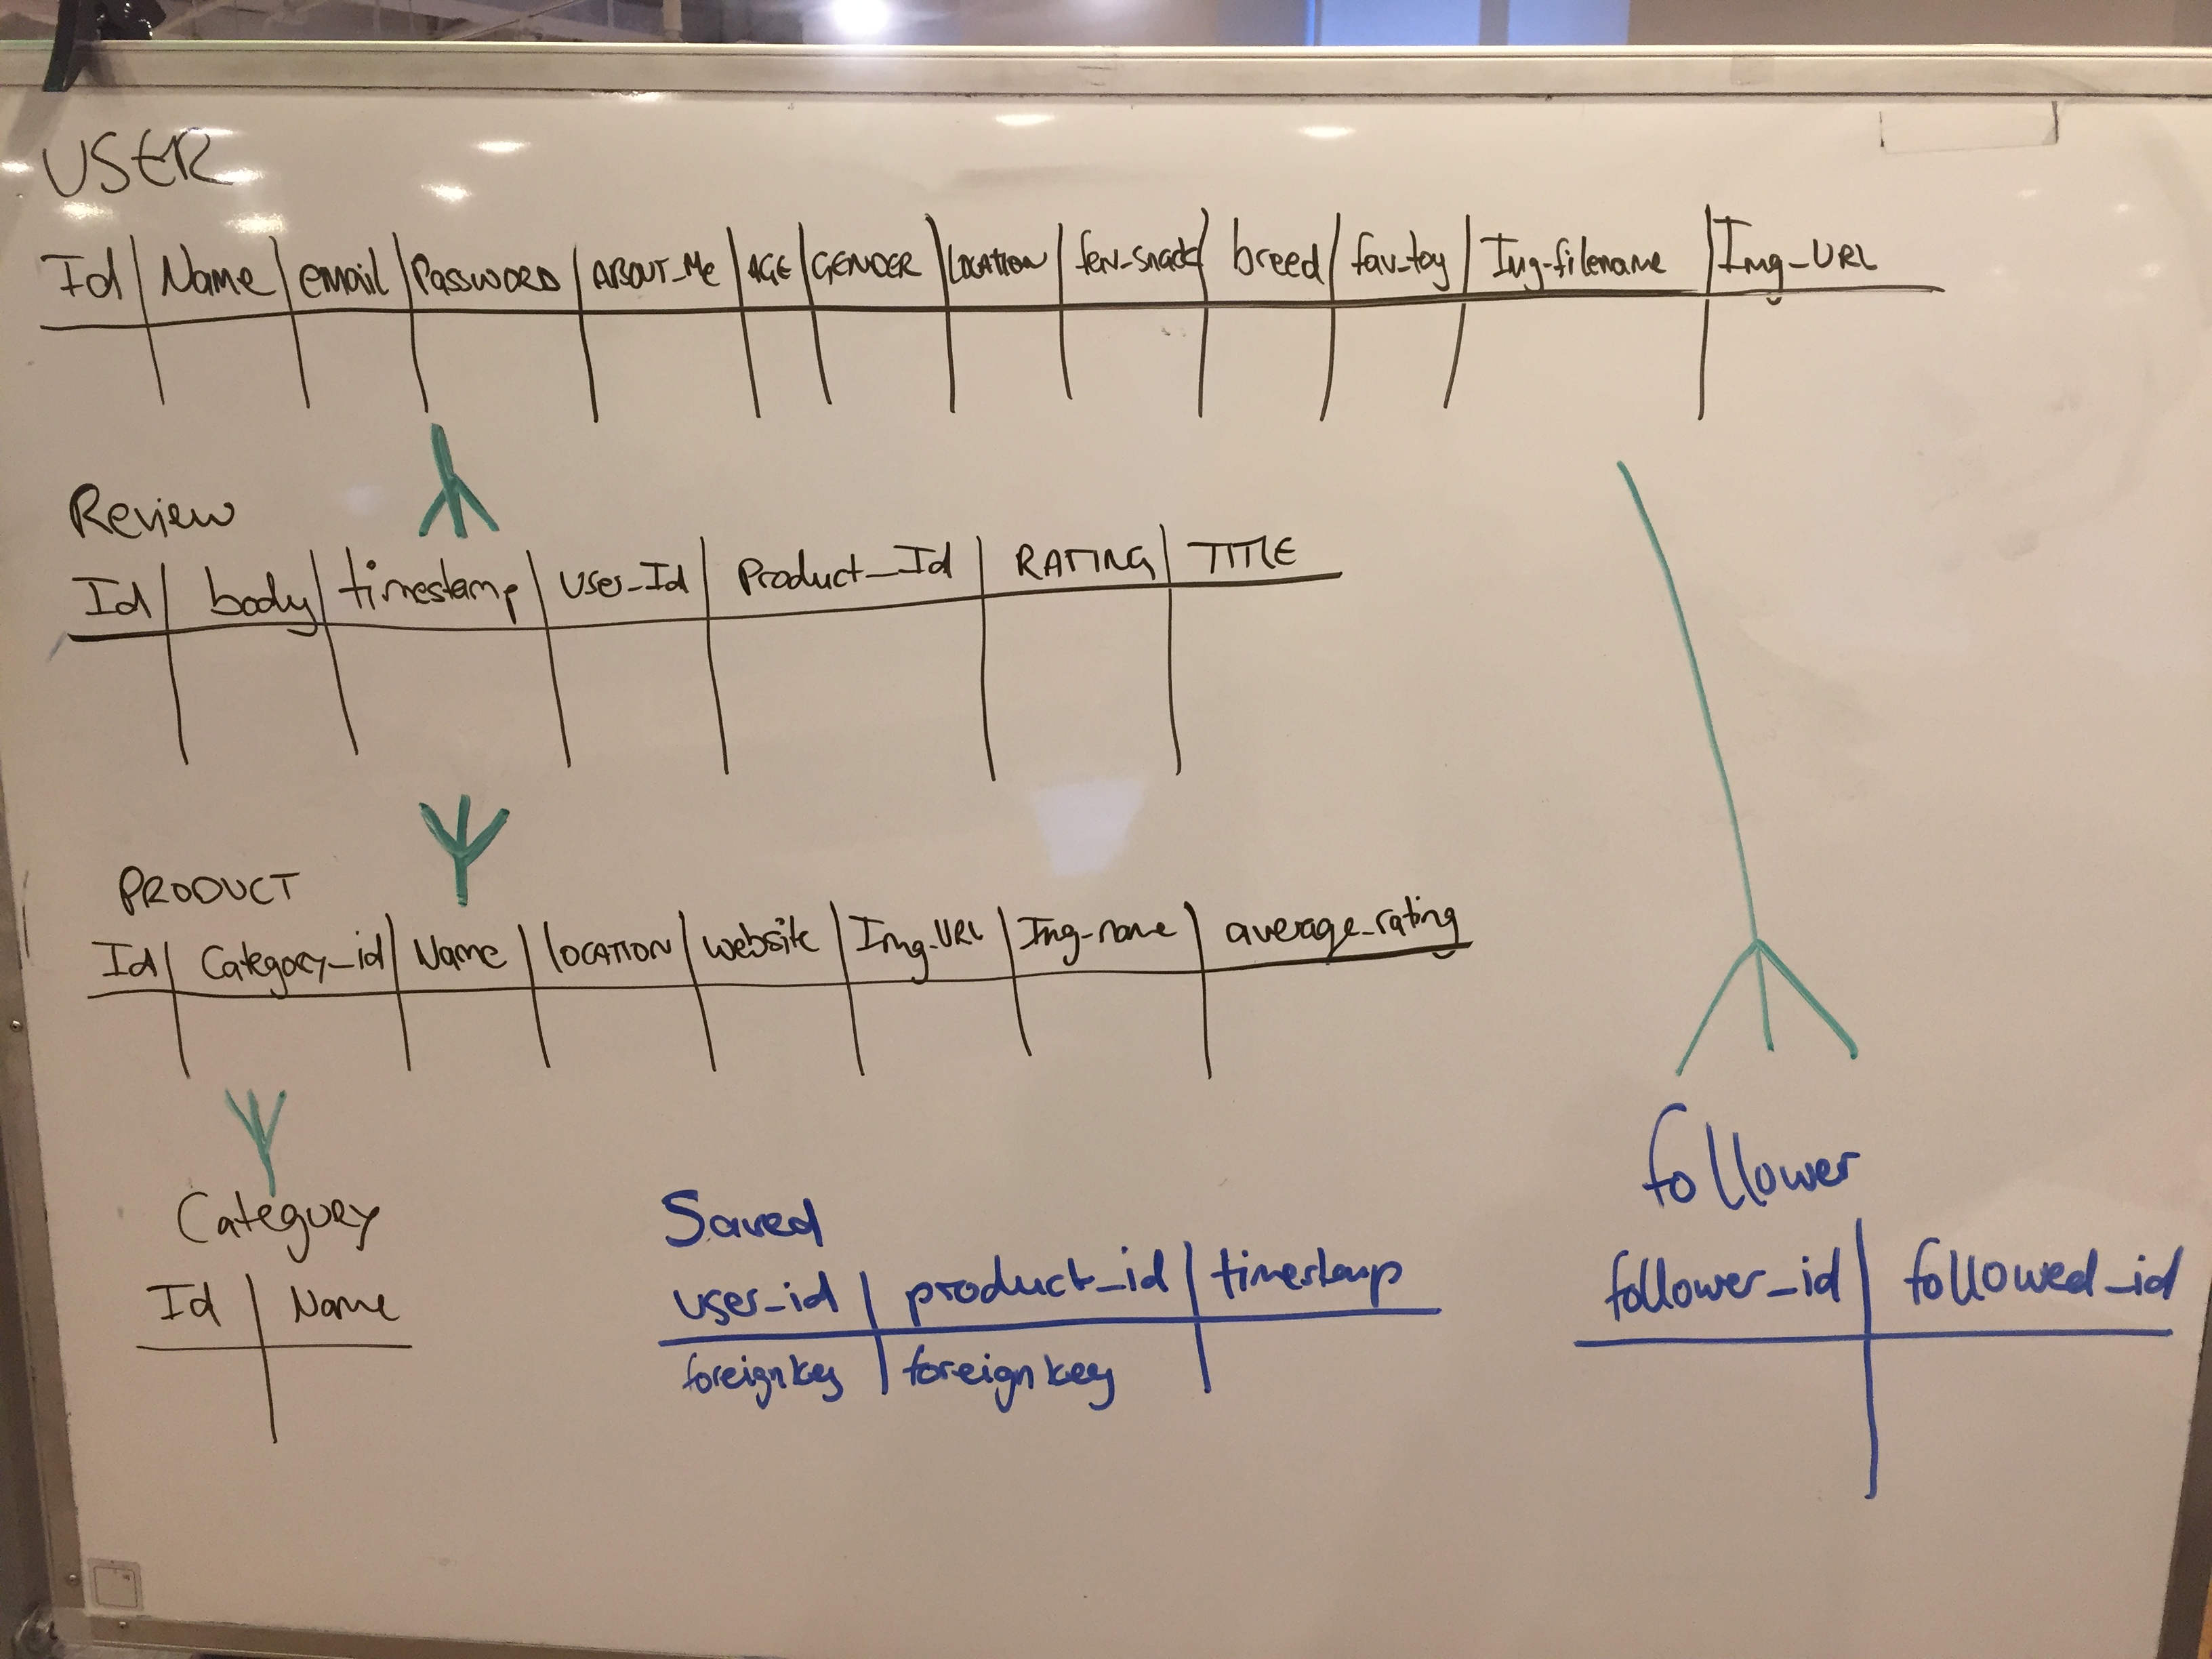 USER
Id Name email Password ABOUT_Me AGE GENDER LOCATION fav_snack breed fav_toy Img_filename Img_URL
Review
Id body timestamp User_Id Product_Id RATING TITLE
PRODUCT
Id Category_id Name LOCATION website Img_URL Img_name average_rating
Category
Id Name
Saved
user_id product_id timestamp
foreign key foreign key
follower
follower_id followed_id